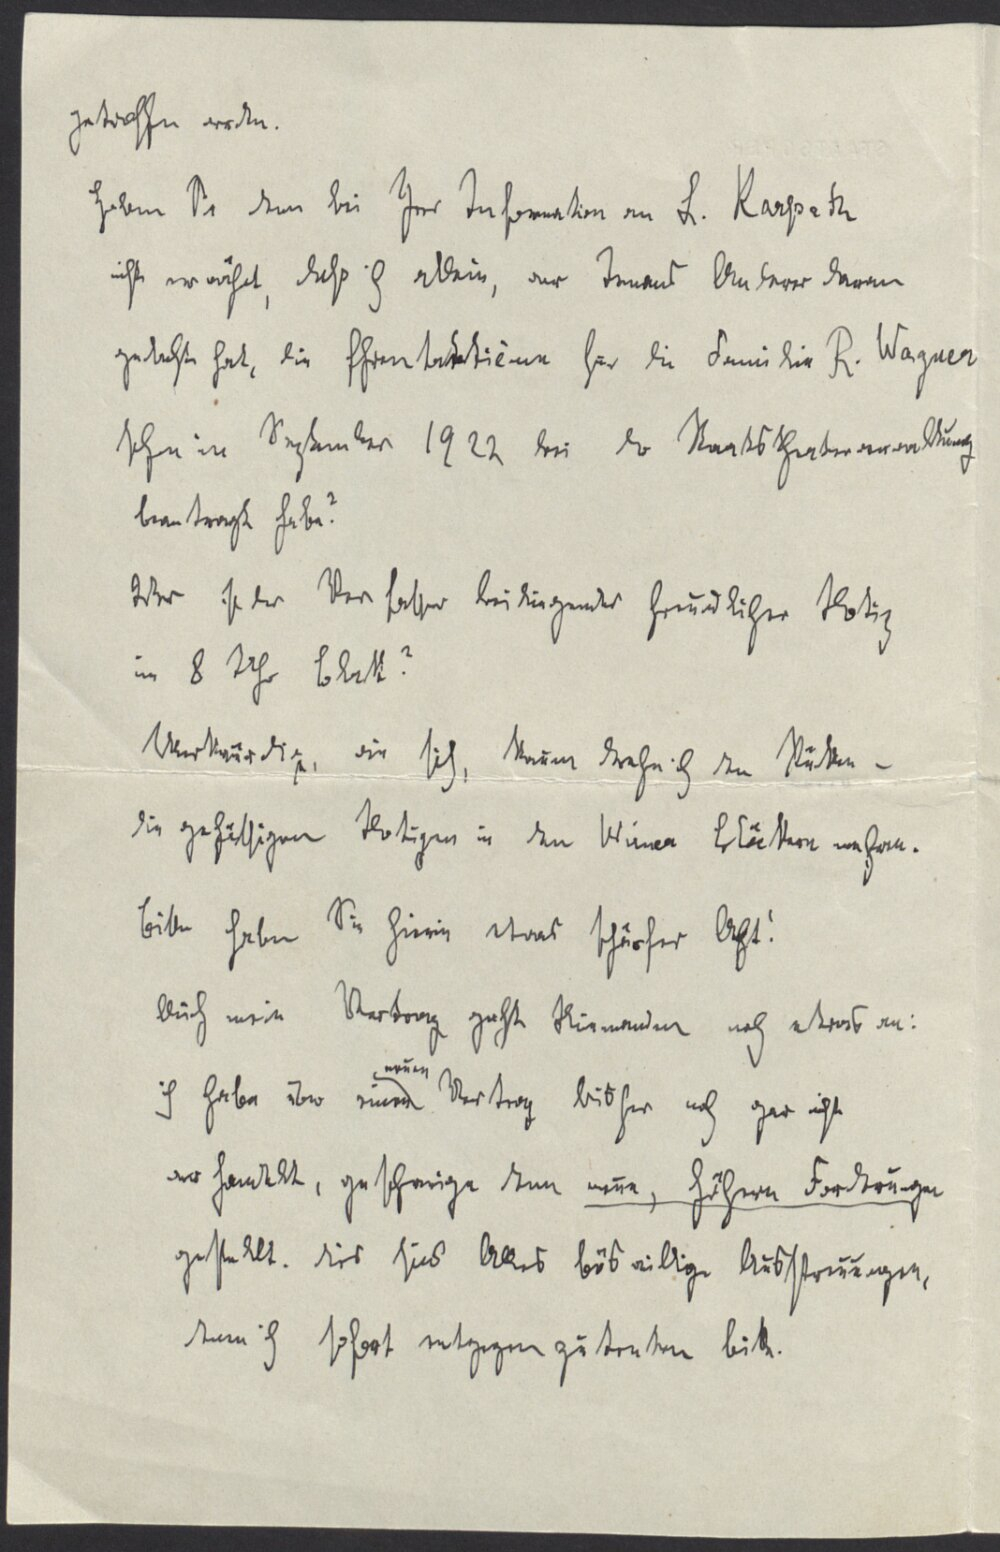 getroffen werden.
Haben Sie denn bei Ihrer Information an L. Karpath
nicht erwähnt, dass ich allein, ever Jemand Anderer daran
gedacht hat, die Ehrentantième für die Familie R. Wagner
schon im September 1922 bei der Staatstheaterverwaltung
beantragt habe?
Wer ist der Verfasser beiliegender freundlicher Notiz
im 8 Uhr Blatt?
Merkwürdig, wie sich, kaum drehe ich den Rücken –
die gehässigen Notizen in den Wiener Blättern mehren.
Bitte haben Sie hierin etwas schärfer Acht!
Auch mein Vertrag geht Niemanden noch etwas an:
ich habe über einen neuen Vertrag bisher noch gar nicht
verhandelt, geschweige denn neue, höhere Forderungen
gestellt. Dies sind Alles böswillige Ausstreuungen,
denen ich sofort entgegenzutreten bitte.